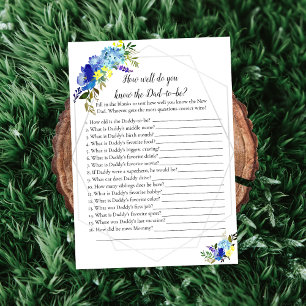 How well do you
know the Dad-to-be?
Fill in the blanks to test how well you know the New
Dad. Whoever gets the most questions correct wins!
1. How old is the Daddy-to-be?
2. What is Daddy's middle name?
3. What is Daddy's birth month?
4. What is Daddy's favorite food?
5. What is Daddy's biggest craving?
6. What is Daddy's favorite drink?
7. What is Daddy's favorite movie?
8. If Daddy were a superhero, he would be?
9. What car does Daddy drive?
10. How many siblings does he have?
11. What is Daddy's favorite hobby?
12. What is Daddy's favorite color?
13. What was Daddy's first job?
14. What is Daddy's favorite sport?
15. Where was Daddy's last vacation?
16. How did he meet Mommy?